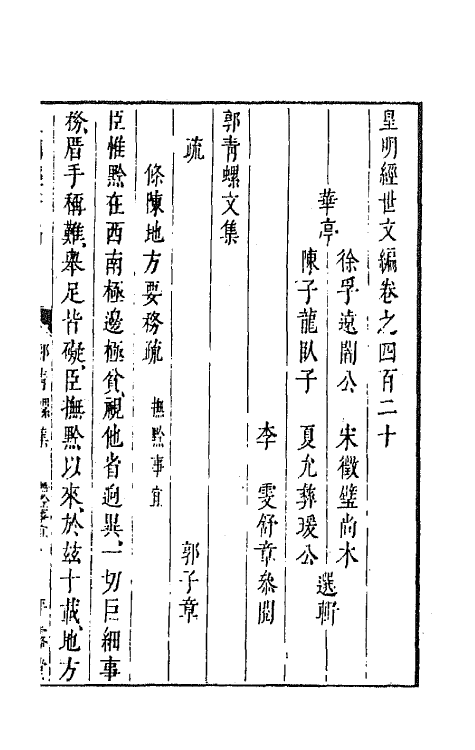 皇明經世文編卷之四百二十
徐孚遠闇公　宋徵璧尚木
華亭　選輯
陳子龍臥子　夏允彝瑗公
李　雯舒章叅閱
郭青螺文集
疏　郭子章
條陳地方要務疏　撫黔事宜
臣惟黔在西南極邊極貧、視他省迥異、一切巨細事
務、厝手稱難、舉足皆礙、臣撫黔以來、於玆十載、地方